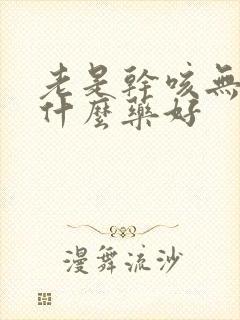 老是幹咳無
什麼藥好
漫舞流沙